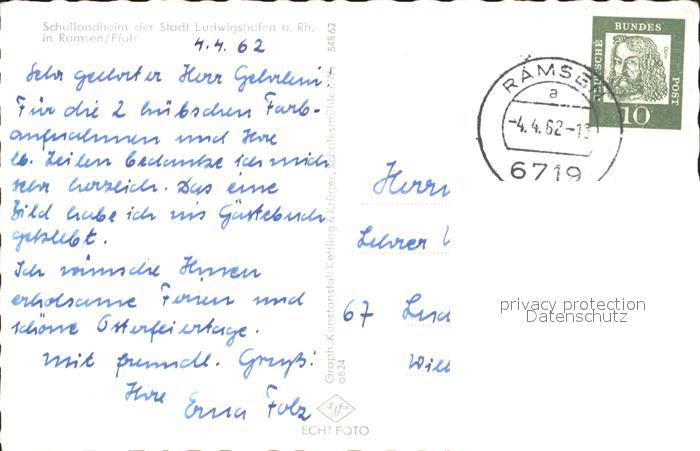 Schullandheim der Stadt Ludwigshafen a. Rh.
in Ramsen/Pfalz
4.4.62
Sehr geehrter Herr
Für die 2 hübschen Farb-
aufnahmen und Ihre
lb. Zeilen bedanke ich mich
sehr herzlich. Das eine
Bild habe ich ins Gästebuch
geklebt.
Ich wünsche Ihnen
erholsame Ferien und
schöne Osterfeiertage.
Mit freundl. Gruß!
Ihre
Erna Folz
548 62
Graph. Kunstanstalt Kettling & Krüger, Schalksmühle
a824
Agfa
ECHT FOTO
Herrn
Lehrer
67
DEUTSCHE
BUNDES
POST
10
RAMSE
a
-4.4.62-13
6719
privacy protection
Datenschutz